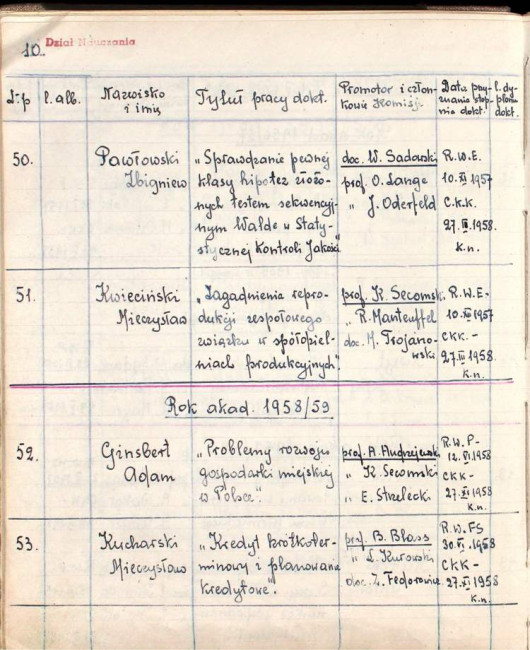 10.
Dział Nauczania
L.p
l. alb.
Nazwisko
i imię
Tytuł pracy dokt.
Promotor i człon-
kowie Komisji
Data przy-
znania stop-
nia dokt.
l. dy-
plomu
dokt.
50.
Pawłowski
Zbigniew
„Sprawdzanie pewnej
klasy hipotez złożo-
nych testem sekwencyj-
nym Walde w Staty-
stycznej Kontroli Jakości
doc. W. Sadowski
prof. O. Lange
" J. Oderfeld
R.W.E.
10.XI 1957
C.K.K.
27.IX.1958.
k.n.
51.
Kwieciński
Mieczysław
„Zagadnienia repro-
dukcji zespołowego
związku w spółdziel-
niach produkcyjnych".
prof. K. Secomski
" R. Manteuffel
doc. M. Trojano-
wski
R.W.E-
10.XI 1957
CKK-
27.IX.1958.
k.n.
Rok akad. 1958/59
52.
Ginsbert
Adam
„Problemy rozwoju
gospodarki miejskiej
w Polsce".
prof. A. Andrzejewski
" K. Secomski
" E. Strzelecki
R.W.P-
12.VI 1958
CKK-
27.IX 1958
k.n.
53.
Kucharski
Mieczysław
„Kredyt krótkoter-
minowy i planowanie
kredytowe".
prof. B. Blass
" L. Kurowski
doc. Z. Fedorowicz
R.W.FS
30.VI.1958
CKK-
27.IX 1958
k.n.